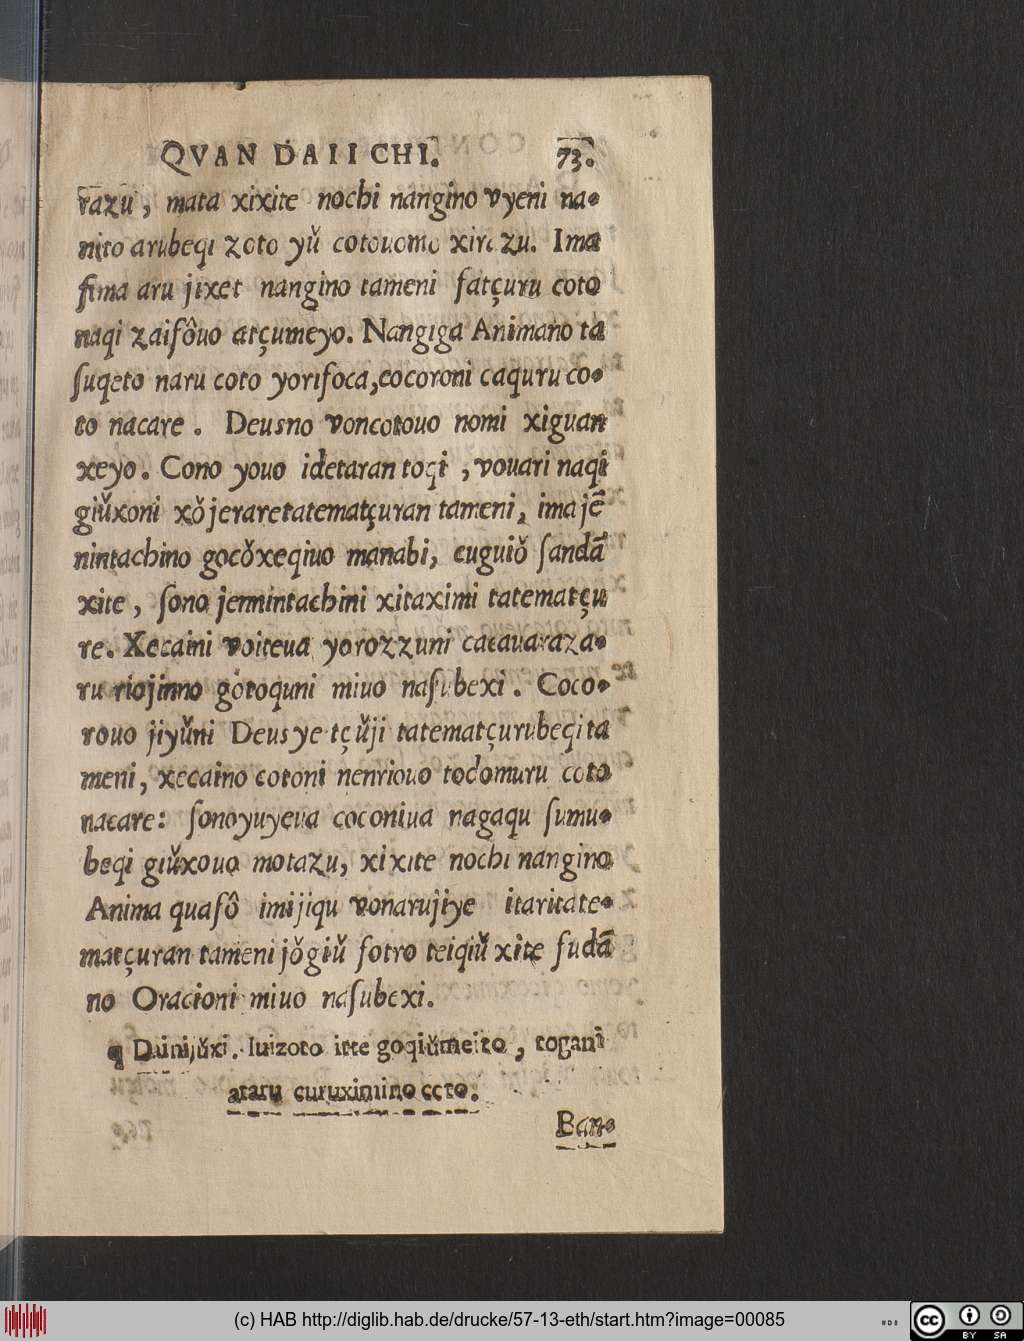 QVAN DAII CHI. 73.
razu, mata xixite nochi nangino vyeni na-
nito arubeqi zoto yŭ cotouomo xirazu. Ima
ſima aru jixet nangino tameni fatçuru coto
naqi zaifôuo atçumeyo. Nangiga Animano ta
ſuqeto naru coto yorifoca, cocoroni caquru co-
to nacare. Deusno voncotouo nomi xiguan
xeyo. Cono youo idetaran toqi, vouari naqi
giŭxoni xŏjeraretatematçuran tameni, ima jẽ
nintachino gocŏxeqiuo manabi, cuguiŏ ſandã
xite, ſono jennintachini xitaximi tatematçu
re. Xecaini voiteua yorozzuni cacauaraza-
ru riojinno gotoquni miuo naſubexi. Coco-
rouo jiyŭni Deus ye tçŭji tatematçurubeqi ta
meni, xecaino cotoni nenriouo todomuru coto
nacare: ſonoyuyeua coconiua nagaqu ſumu-
beqi giŭxouo motazu, xixite nochi nangino
Anima quafô imijiqu vonarujiye itaritate-
matçuran tameni jŏgiŭ fotro teiqiŭ xite fudã
no Oracioni miuo naſubexi.
¶ Dainijŭxi. Iuizoto itte goqiŭmeito, togani
ataru curuximino coto.
Ban-
(c) HAB http://diglib.hab.de/drucke/57-13-eth/start.htm?image=00085
cc BY SA